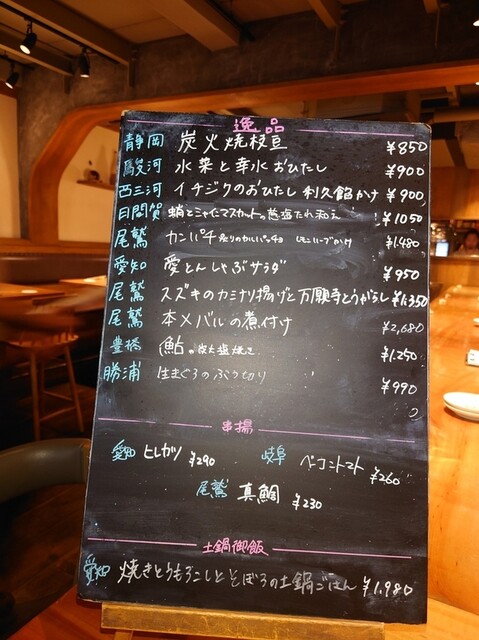 逸品
静岡 炭火焼枝豆 ¥850
駿河 水菜と幸水おひたし ¥900
西三河 イチジクのおひたし 利久餡かけ ¥900
日間賀 蛸とシャインマスカットの葱塩たれ和え ¥1050
尾鷲 カンパチ 炙りのカルパッチョ レモンハーブがけ ¥1,480
愛知 愛とんしゃぶサラダ ¥950
尾鷲 スズキのカミナリ揚げと万願寺とうがらし ¥1,350
尾鷲 本メバルの煮付け ¥2,680
豊橋 鮎の炭火塩焼き ¥1,250
勝浦 生まぐろのぶつ切り ¥990
串揚
愛知 ヒレカツ ¥290 岐阜 ベーコントマト ¥260
尾鷲 真鯛 ¥230
土鍋御飯
愛知 焼きとうもろこしとそぼろの土鍋ごはん ¥1,980